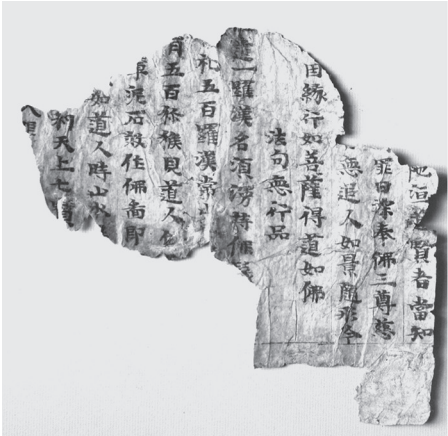 洹賢者當知
罪日深奉佛三尊慈
惡追人如景隨形今
因緣行如菩薩得道如佛
法句惡行品
遣一羅漢名須漫持佛
礼五百羅漢常
有五百猕猴見道人
泥石效作佛啚即
如道人時山水
利天上七寶